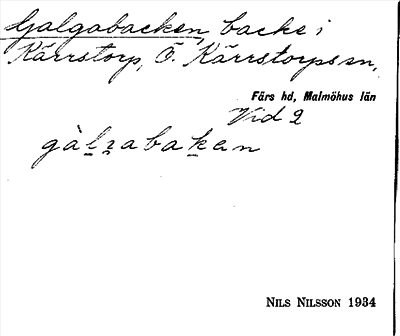 Galgabacken, backe i
Kärrstorp, Ö. Kärrstorps sn,
Färs hd, Malmöhus län
Vid 2
gàlgabakan
NILS NILSSON 1934